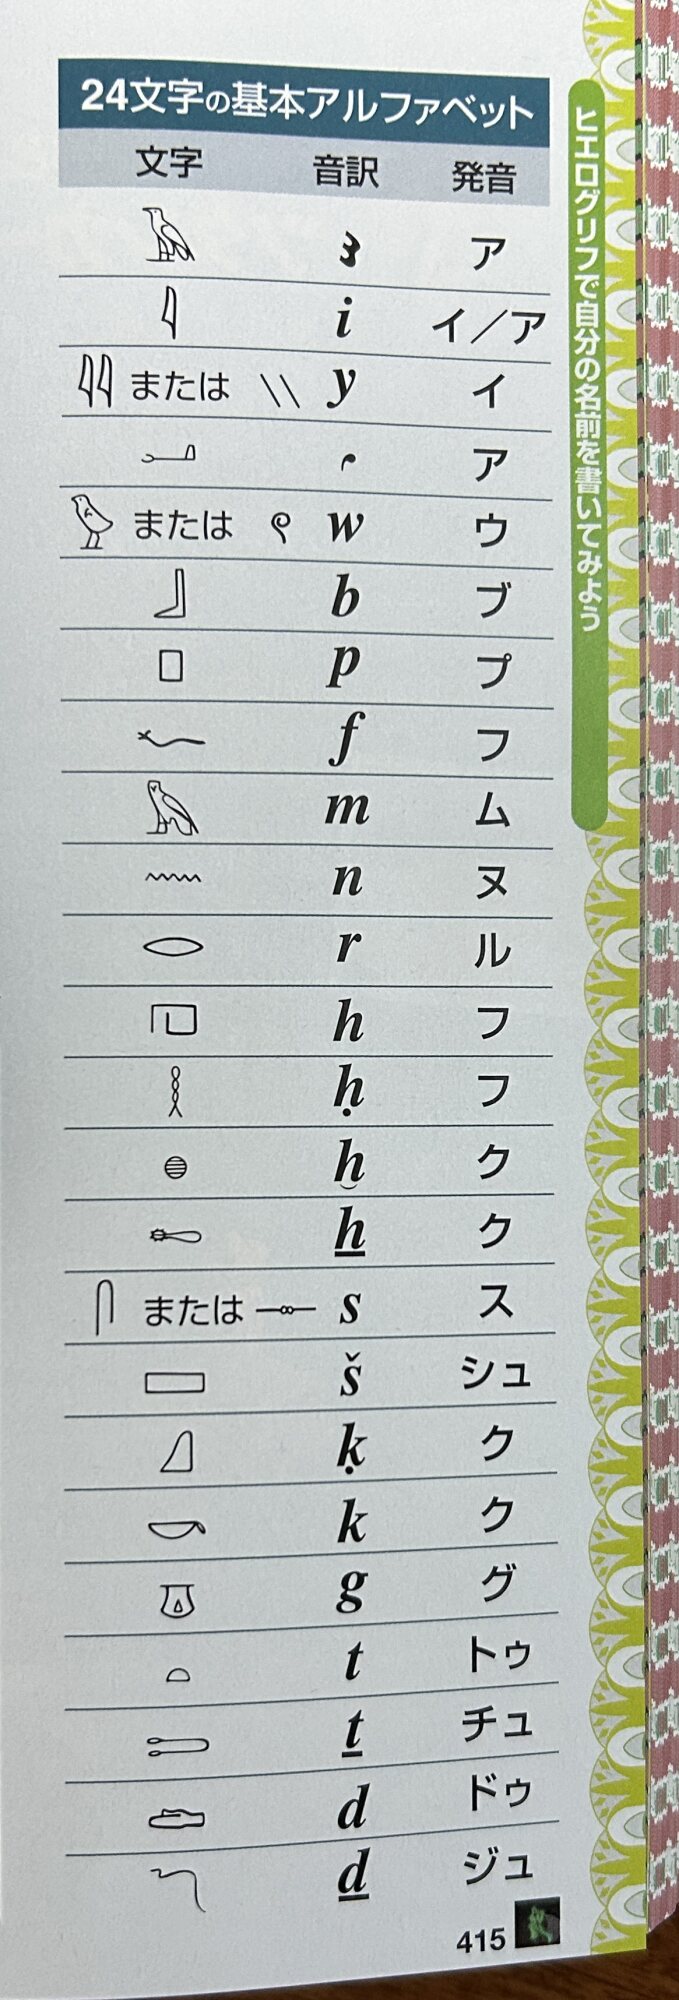 24文字の基本アルファベット
文字 音訳 発音
𓄿 ꜣ ア
𓇋 i イ／ア
𓇌 または 𓏭 y イ
𓂝 ꜥ ア
𓅱 または 𓏲 w ウ
𓃀 b ブ
𓊪 p プ
𓆑 f フ
𓅓 m ム
𓈖 n ヌ
𓂋 r ル
𓉔 h フ
𓎛 ḥ フ
𓐍 ḫ ク
𓄡 ẖ ク
𓋴 または 𓊃 s ス
𓈙 š シュ
𓈎 ḳ ク
𓎡 k ク
𓎼 g グ
𓏏 t トゥ
𓍿 ṯ チュ
𓂧 d ドゥ
𓆓 ḏ ジュ
415
ヒエログリフで自分の名前を書いてみよう